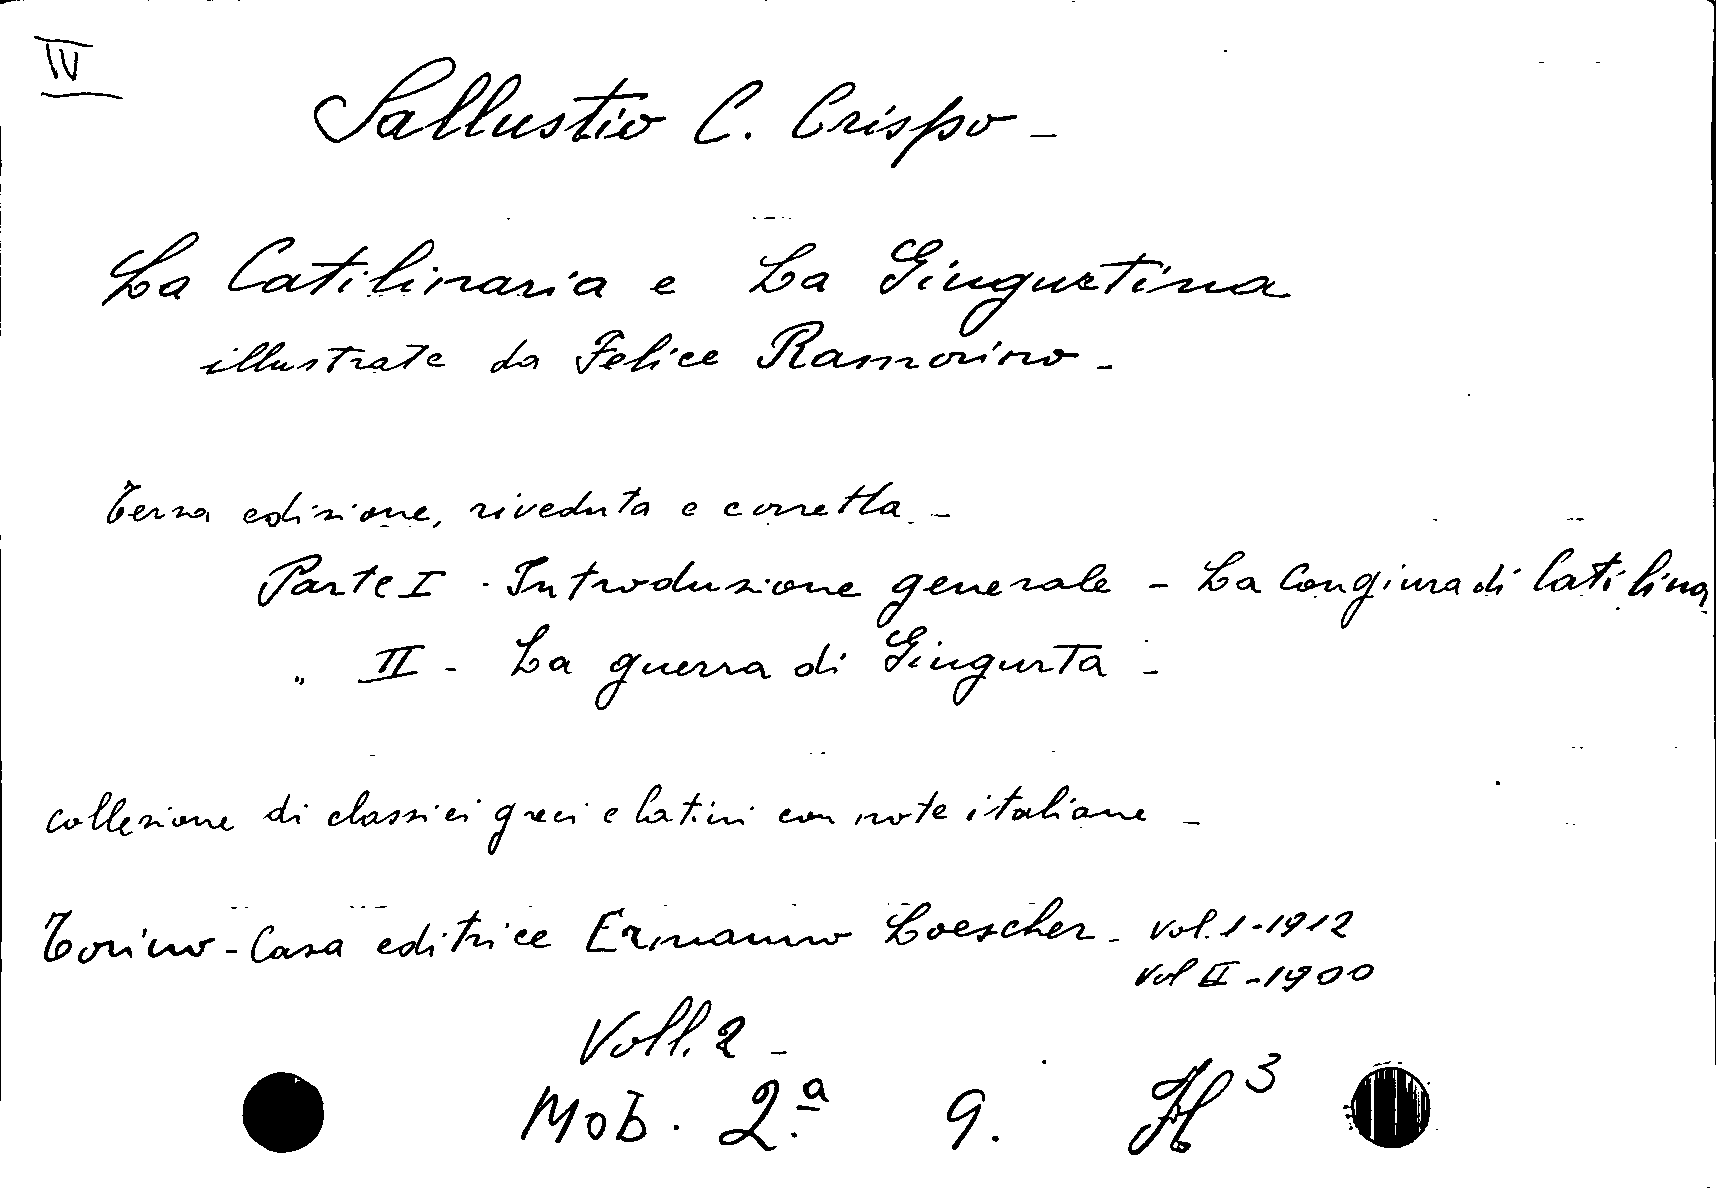 IV
Sallustio C. Crispo -
La Catilinaria e La Giugurtina
illustrate da Felice Ramorino -
Terza edizione, riveduta e corretta -
Parte I - Introduzione generale - La Congiura di Catilina
" II - La guerra di Giugurta -
collezione di classici greci e latini con note italiane -
Torino - Casa editrice Ermanno Loescher - vol. 1 - 1912
vol II - 1900
Voll. 2 -
Mob. 2.ª 9. H 3